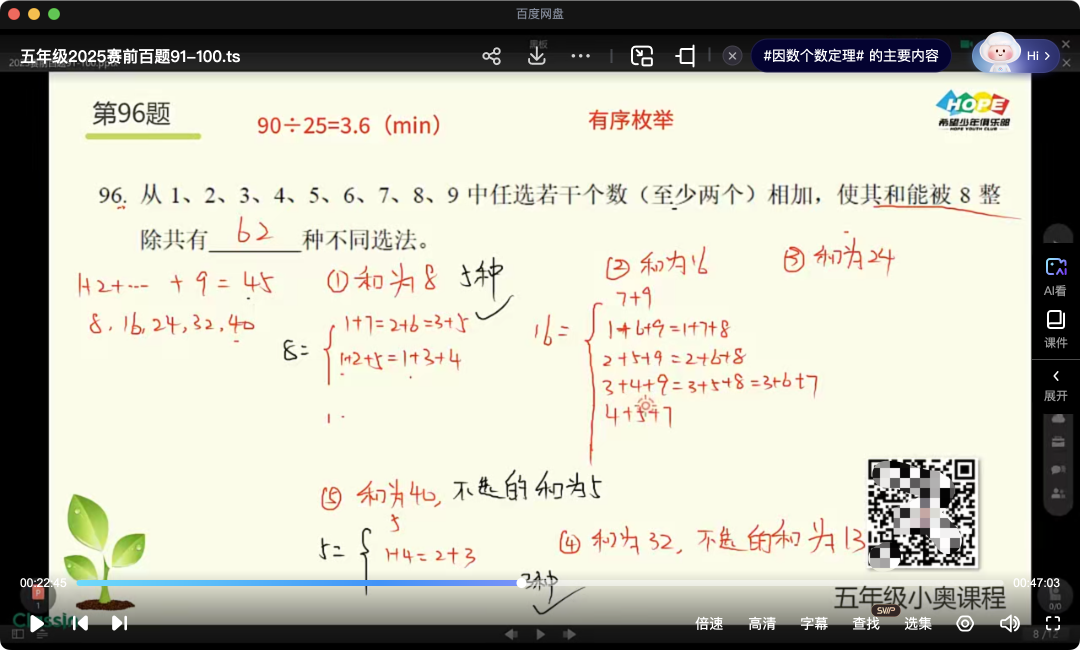 百度网盘
五年级2025赛前百题91-100.ts
#因数个数定理# 的主要内容
Hi >
第96题
90÷25=3.6（min）
有序枚举
HOPE
希望少年俱乐部
HOPE YOUTH CLUB
96. 从 1、2、3、4、5、6、7、8、9 中任选若干个数（至少两个）相加，使其和能被 8 整
除共有 62 种不同选法。
1+2+… + 9 = 45
8, 16, 24, 32, 40
① 和为 8 5种
8=
1+7=2+6=3+5
1+2+5=1+3+4
② 和为16
16=
7+9
1+6+9=1+7+8
2+5+9=2+6+8
3+4+9=3+5+8=3+6+7
4+5+7
③ 和为24
⑤ 和为40, 不选的和为5
5=
5
1+4=2+3
3种
④ 和为32, 不选的和为13
AI看
课件
展开
00:22:45
00:47:03
五年级小奥课程
倍速
高清
字幕
SWP
查找
选集
0/0
8 / 12